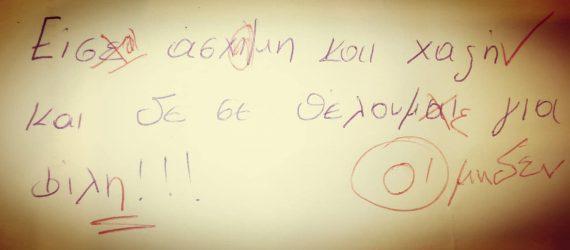 Εισαι ασχημη και χαζη
και δε σε θελουμε για
φιλη!!! μηδεν